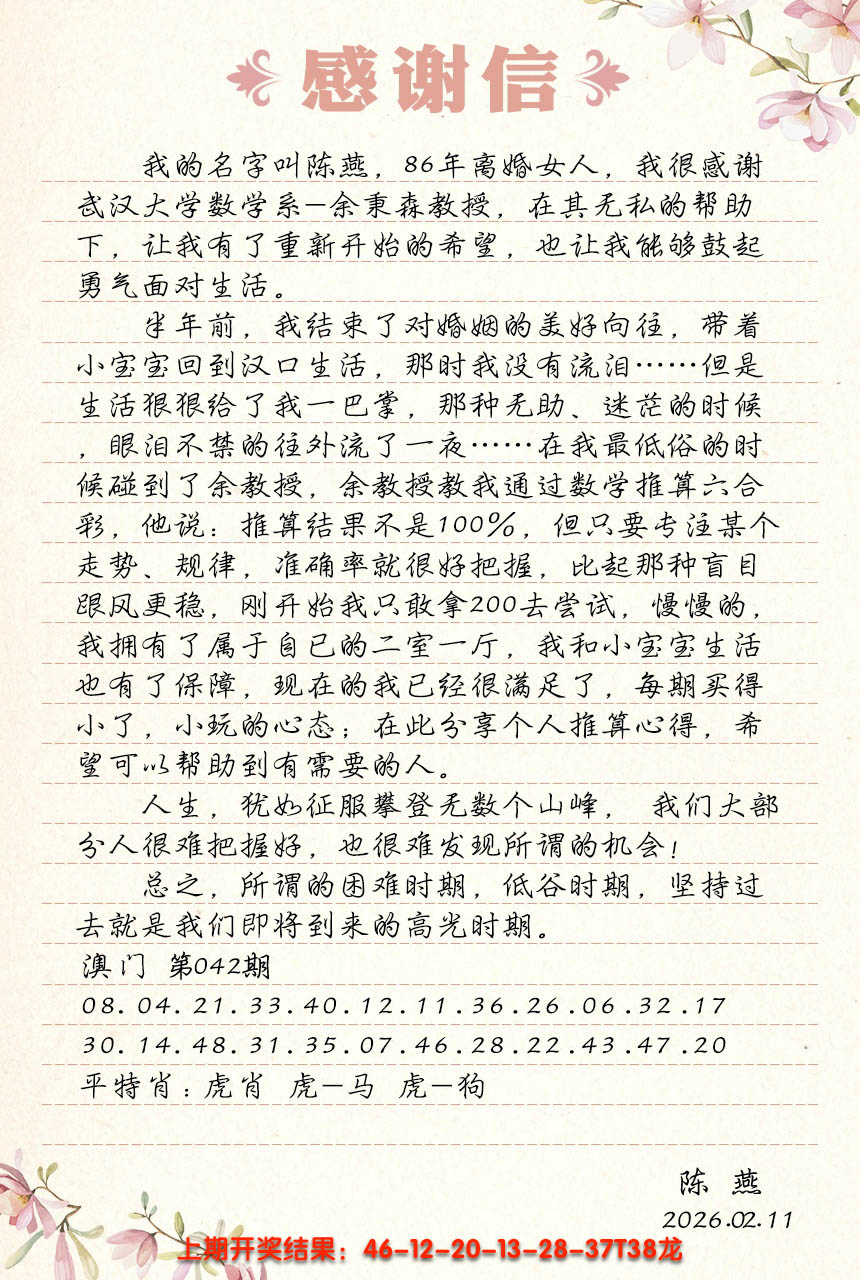 感谢信
我的名字叫陈燕，86年离婚女人，我很感谢
武汉大学数学系—余秉森教授，在其无私的帮助
下，让我有了重新开始的希望，也让我能够鼓起
勇气面对生活。
半年前，我结束了对婚姻的美好向往，带着
小宝宝回到汉口生活，那时我没有流泪……但是
生活狠狠给了我一巴掌，那种无助、迷茫的时候
，眼泪不禁的往外流了一夜……在我最低俗的时
候碰到了余教授，余教授教我通过数学推算六合
彩，他说：推算结果不是100%，但只要专注某个
走势、规律，准确率就很好把握，比起那种盲目
跟风更稳，刚开始我只敢拿200去尝试，慢慢的，
我拥有了属于自已的二室一厅，我和小宝宝生活
也有了保障，现在的我已经很满足了，每期买得
小了，小玩的心态；在此分享个人推算心得，希
望可以帮助到有需要的人。
人生，犹如征服攀登无数个山峰， 我们大部
分人很难把握好，也很难发现所谓的机会！
总之，所谓的困难时期，低谷时期，坚持过
去就是我们即将到来的高光时期。
澳门 第042期
08.04.21.33.40.12.11.36.26.06.32.17
30.14.48.31.35.07.46.28.22.43.47.20
平特肖：虎肖 虎—马 虎—狗
陈 燕
2026.02.11
上期开奖结果：46-12-20-13-28-37T38龙